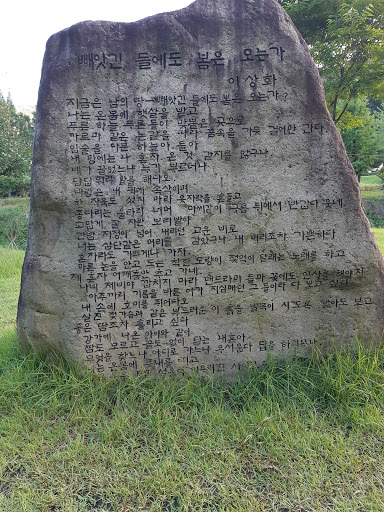 빼앗긴 들에도 봄은 오는가
이상화
지금은 남의 땅 - 빼앗긴 들에도 봄은 오는가?
나는 온몸에 햇살을 받고
푸른 하늘 푸른 들이 맞붙은 곳으로
가르마 같은 논길을 따라 꿈속을 가듯 걸어만 간다
입술을 다문 하늘아 들아
내 맘에는 나 혼자 온 것 같지를 않구나
네가 끌었느냐 누가 부르더냐
답답워라 말을 해다오
바람은 내 귀에 속삭이며
한 자욱도 섰지 마라 옷자락을 흔들고
종다리는 울타리 너머 아씨같이 구름 뒤에서 반갑다 웃네
고맙게 잘 자란 보리밭아
간밤 자정이 넘어 내리던 고운 비로
너는 삼단같은 머리를 감았구나 내 머리조차 가뿐하다
혼자라도 가쁘게나 가자
마른 논을 안고 도는 착한 도랑이 젖먹이 달래는 노래를 하고
제 혼자 어깨춤만 추고 가네
나비 제비야 깝치지 마라 맨드라미 들마 꽃에도 인사를 해야지
아주까리 기름을 바른 이가 지심매던 그 들이라 다 보고 싶다
내 손에 호미를 쥐어다오
살진 젖가슴과 같은 부드러운 이 흙을 발목이 시도록 밟아도 보고
좋은 땀조차 흘리고 싶다
강가에 나온 아이와 같이
짬도 모르고 끝도 없이 닫는 내 혼아
무엇을 찾느냐 어디로 가느냐 웃서웁다 답을 하려무나
나는 온몸에 풋내를 띠고